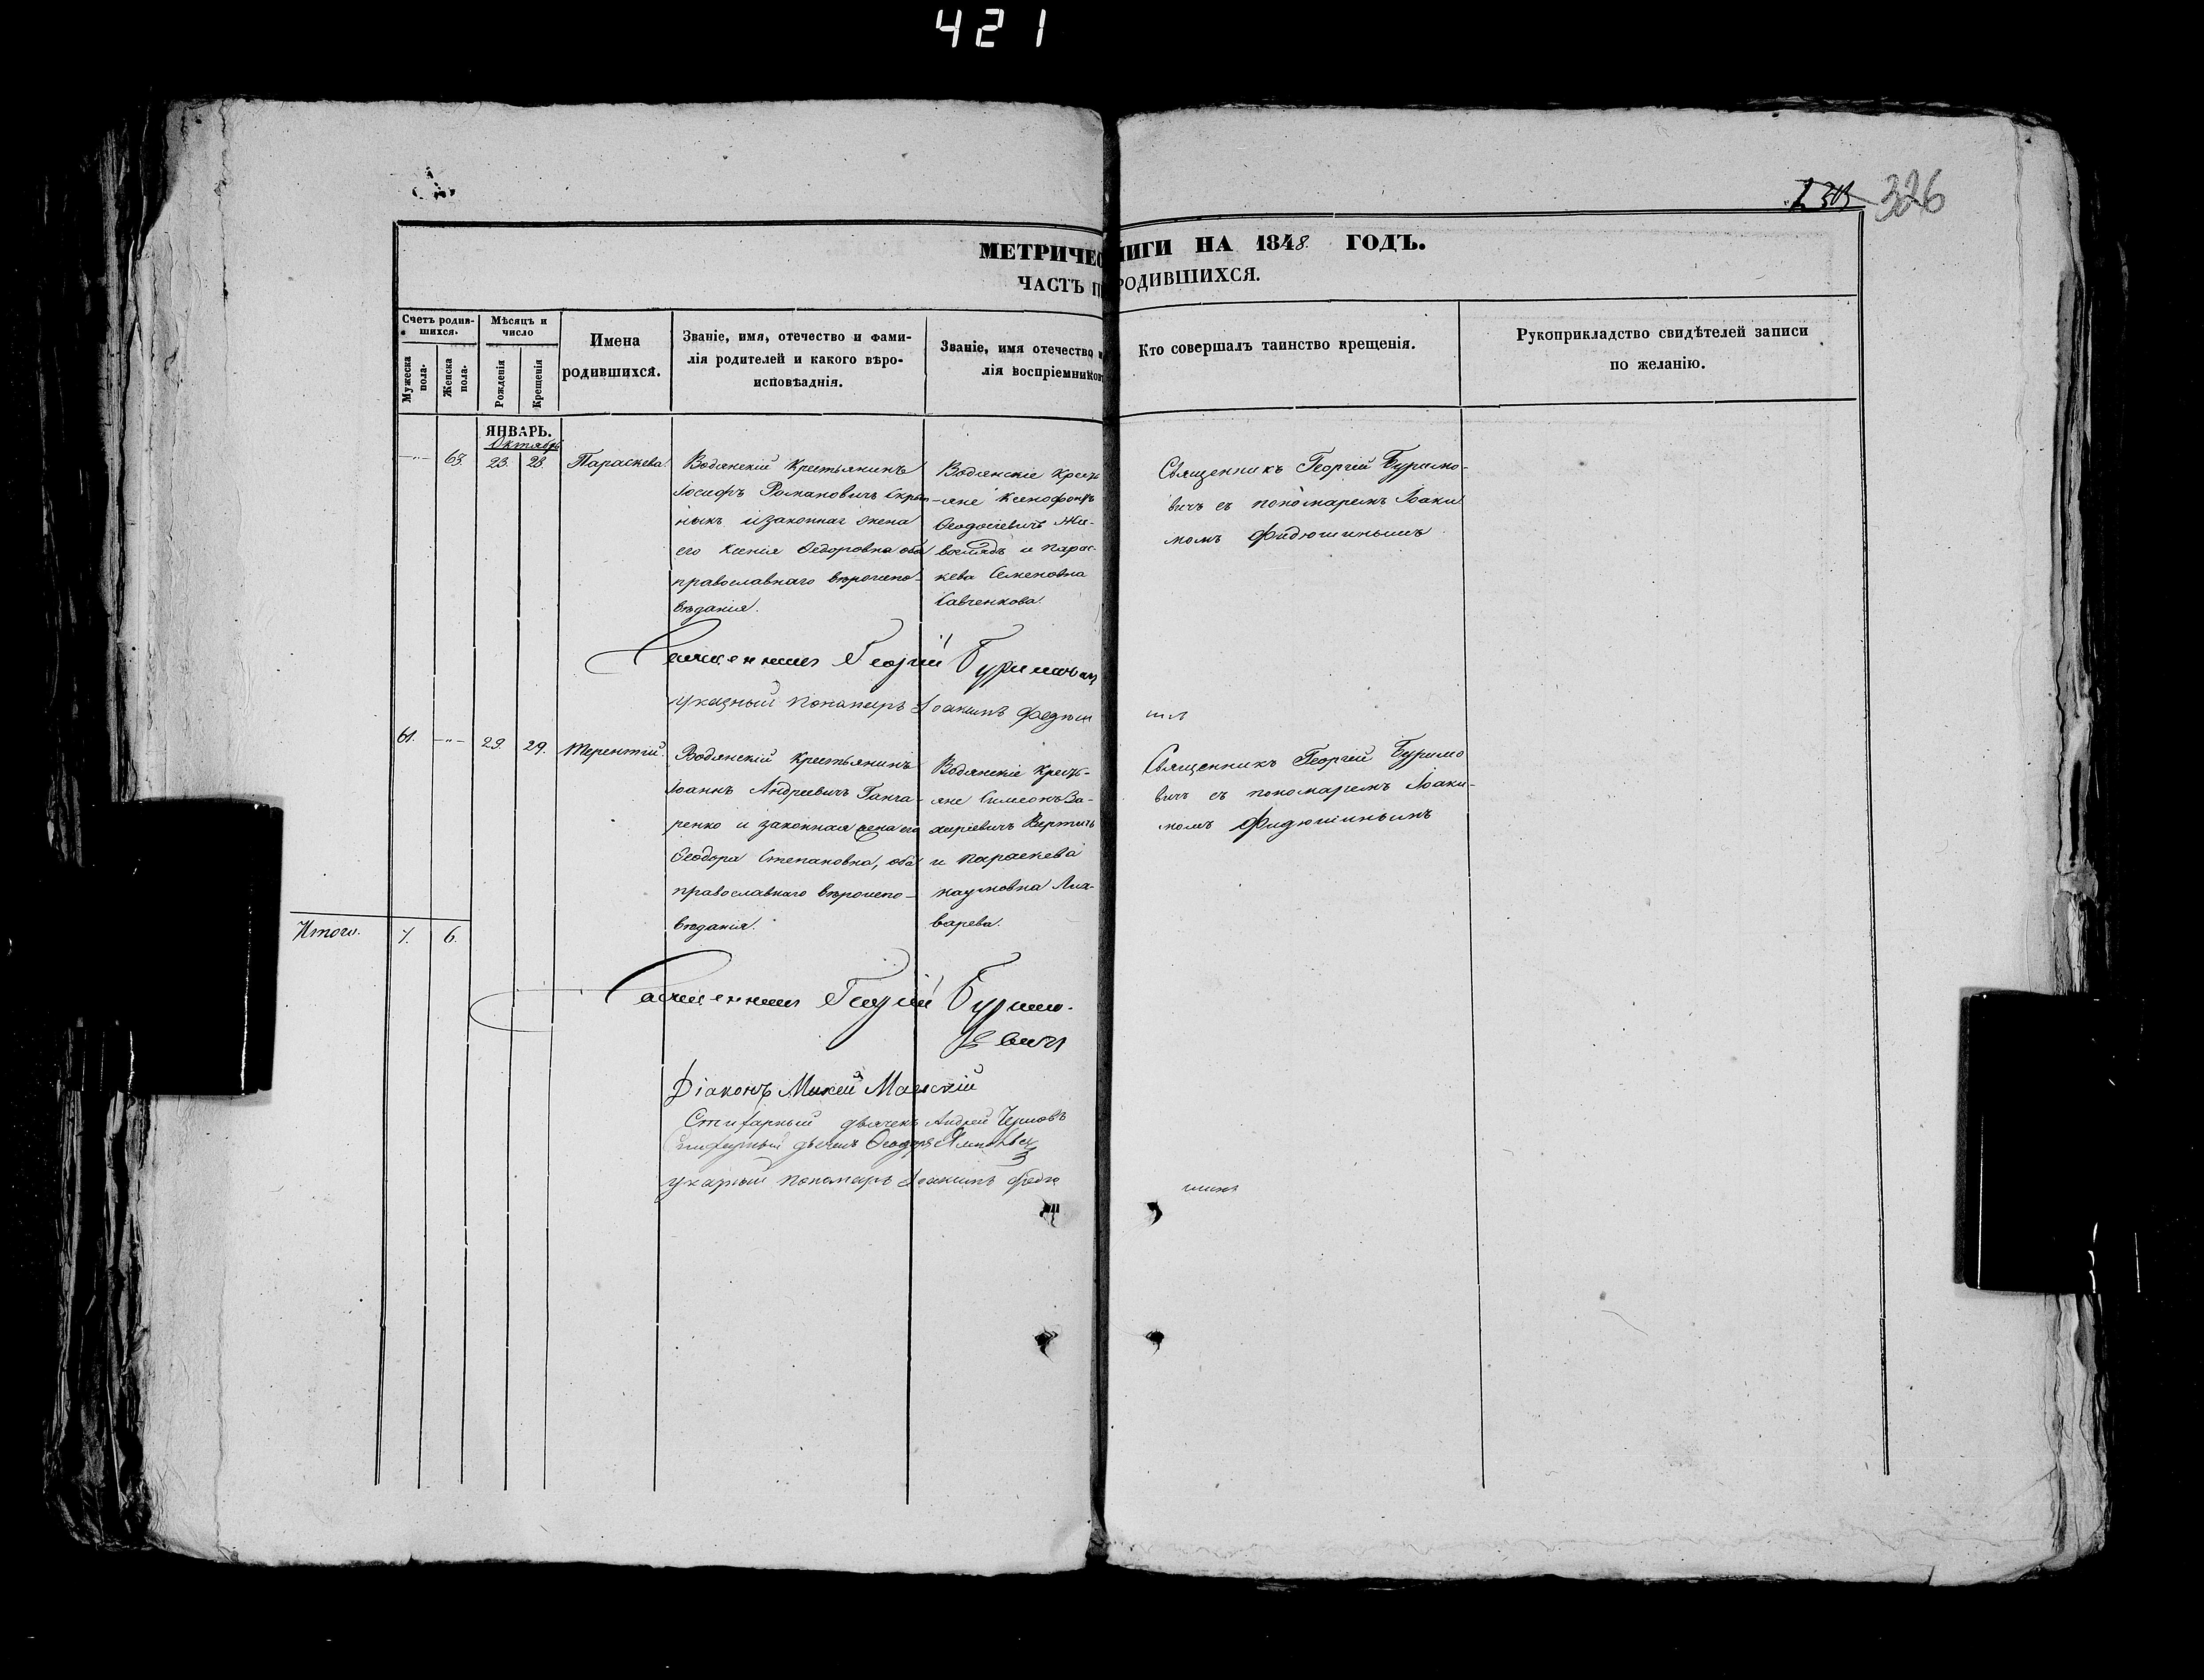 421
326
МЕТРИЧЕС НИГИ НА 1848. ГОДЪ.
ЧАСТЬ П РОДИВШИХСЯ.
Счетъ родив-
шихся.
Мужеска
пола.
Женска
пола.
Мѣсяцъ и
число
Рожденія
Крещенія
Имена
родившихся.
Званіе, имя, отечество и фами-
лія родителей и какого вѣро-
исповѣданія.
Званіе, имя отечество и
лія воспріемников
Кто совершалъ таинство крещенія.
Рукоприкладство свидѣтелей записи
по желанію.
ЯНВАРЬ.
Октябрь
63. 23. 28. Параскева.
Водянскій крестьянинъ
Іосифъ Романовичъ
никъ и законная жена
его Ксенія Ѳедоровна оба
православнаго вѣроиспо-
вѣданія.
Водянскіе крестъ
-яне Ксенофонтъ
Ѳеодосіевичъ Жи-
и Парас-
кева Семеновна
Савченкова.
Священникъ Георгій Буримо-
вичъ съ пономаремъ Іоаки
момъ Фидюшинымъ
Священникъ Георгій Буримович
указный пономарь Іоакимъ Федюш
инъ
61. 29. 29. Терентій.
Водянскій крестьянинъ
Іоаннъ Андреевичъ Ганча-
ренко и законная жена его
Ѳеодора Степановна, оба
православнаго вѣроиспо-
вѣданія.
Водянскіе крестъ-
яне Симеонъ За-
харіевичъ
и Параскева
Наумовна
варева.
Священникъ Георгій Буримо
вичъ съ пономаремъ Іоаки-
момъ Фидюшинымъ
Итого. 7. 6.
Священникъ Георгій Буримо-
вичъ
Діаконъ Мокей
дьячекъ Андрей Черновъ
дьячекъ Ѳеодоръ
указный пономарь Іоакимъ Федю
шинъ